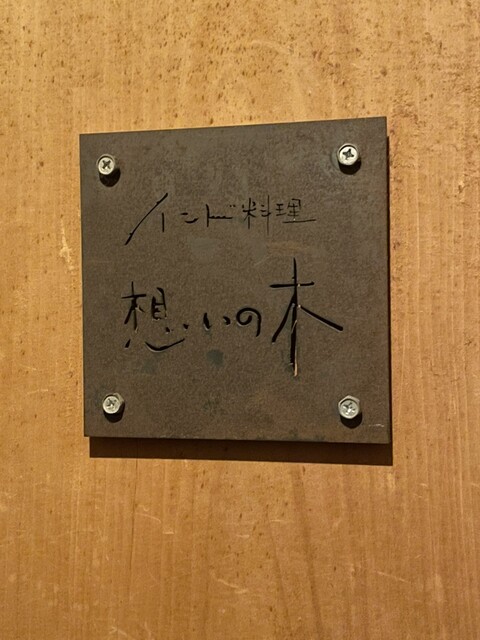 インド料理
想いの木